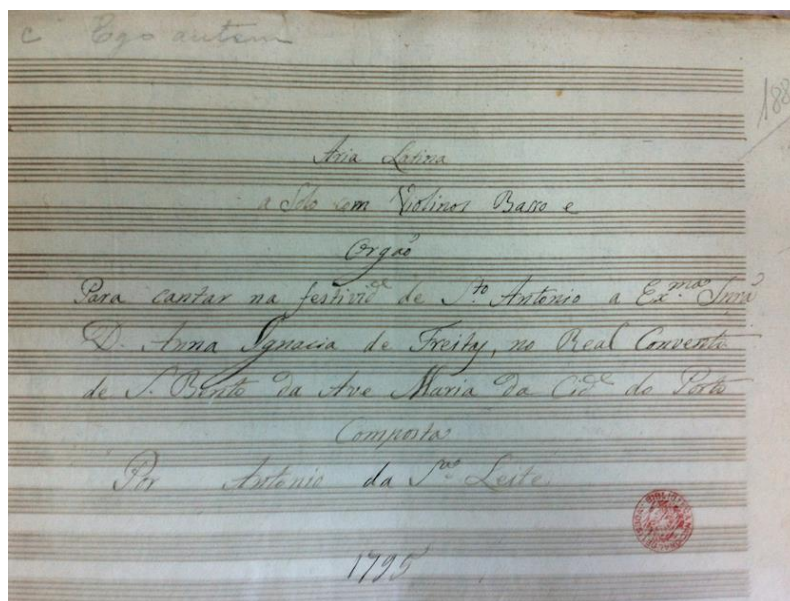 C Ego autem
188
Aria Latina
a Solo com Violinos Basso e
Orgaõ
Para cantar na festivid.e de S.to Antonio a Ex.ma Snrã
D. Anna Ignacia de Freitas, no Real Convento
de S. Bento da Ave Maria da Cid.e do Porto
Composta
Por Antonio da S.a Leite
1795